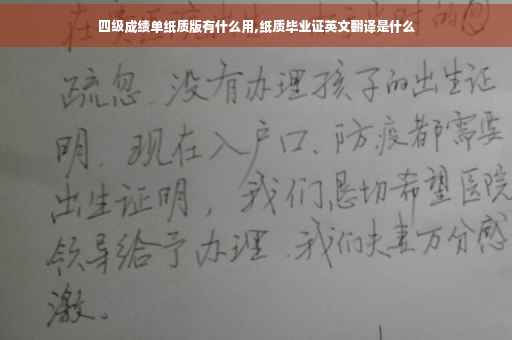 四级成绩单纸质版有什么用,纸质毕业证英文翻译是什么
疏忽、没有办理孩子的出生证
明、现在入户口、防疫都需要
出生证明，我们恳切希望医院
领导给予办理、我们夫妻万分感
激。